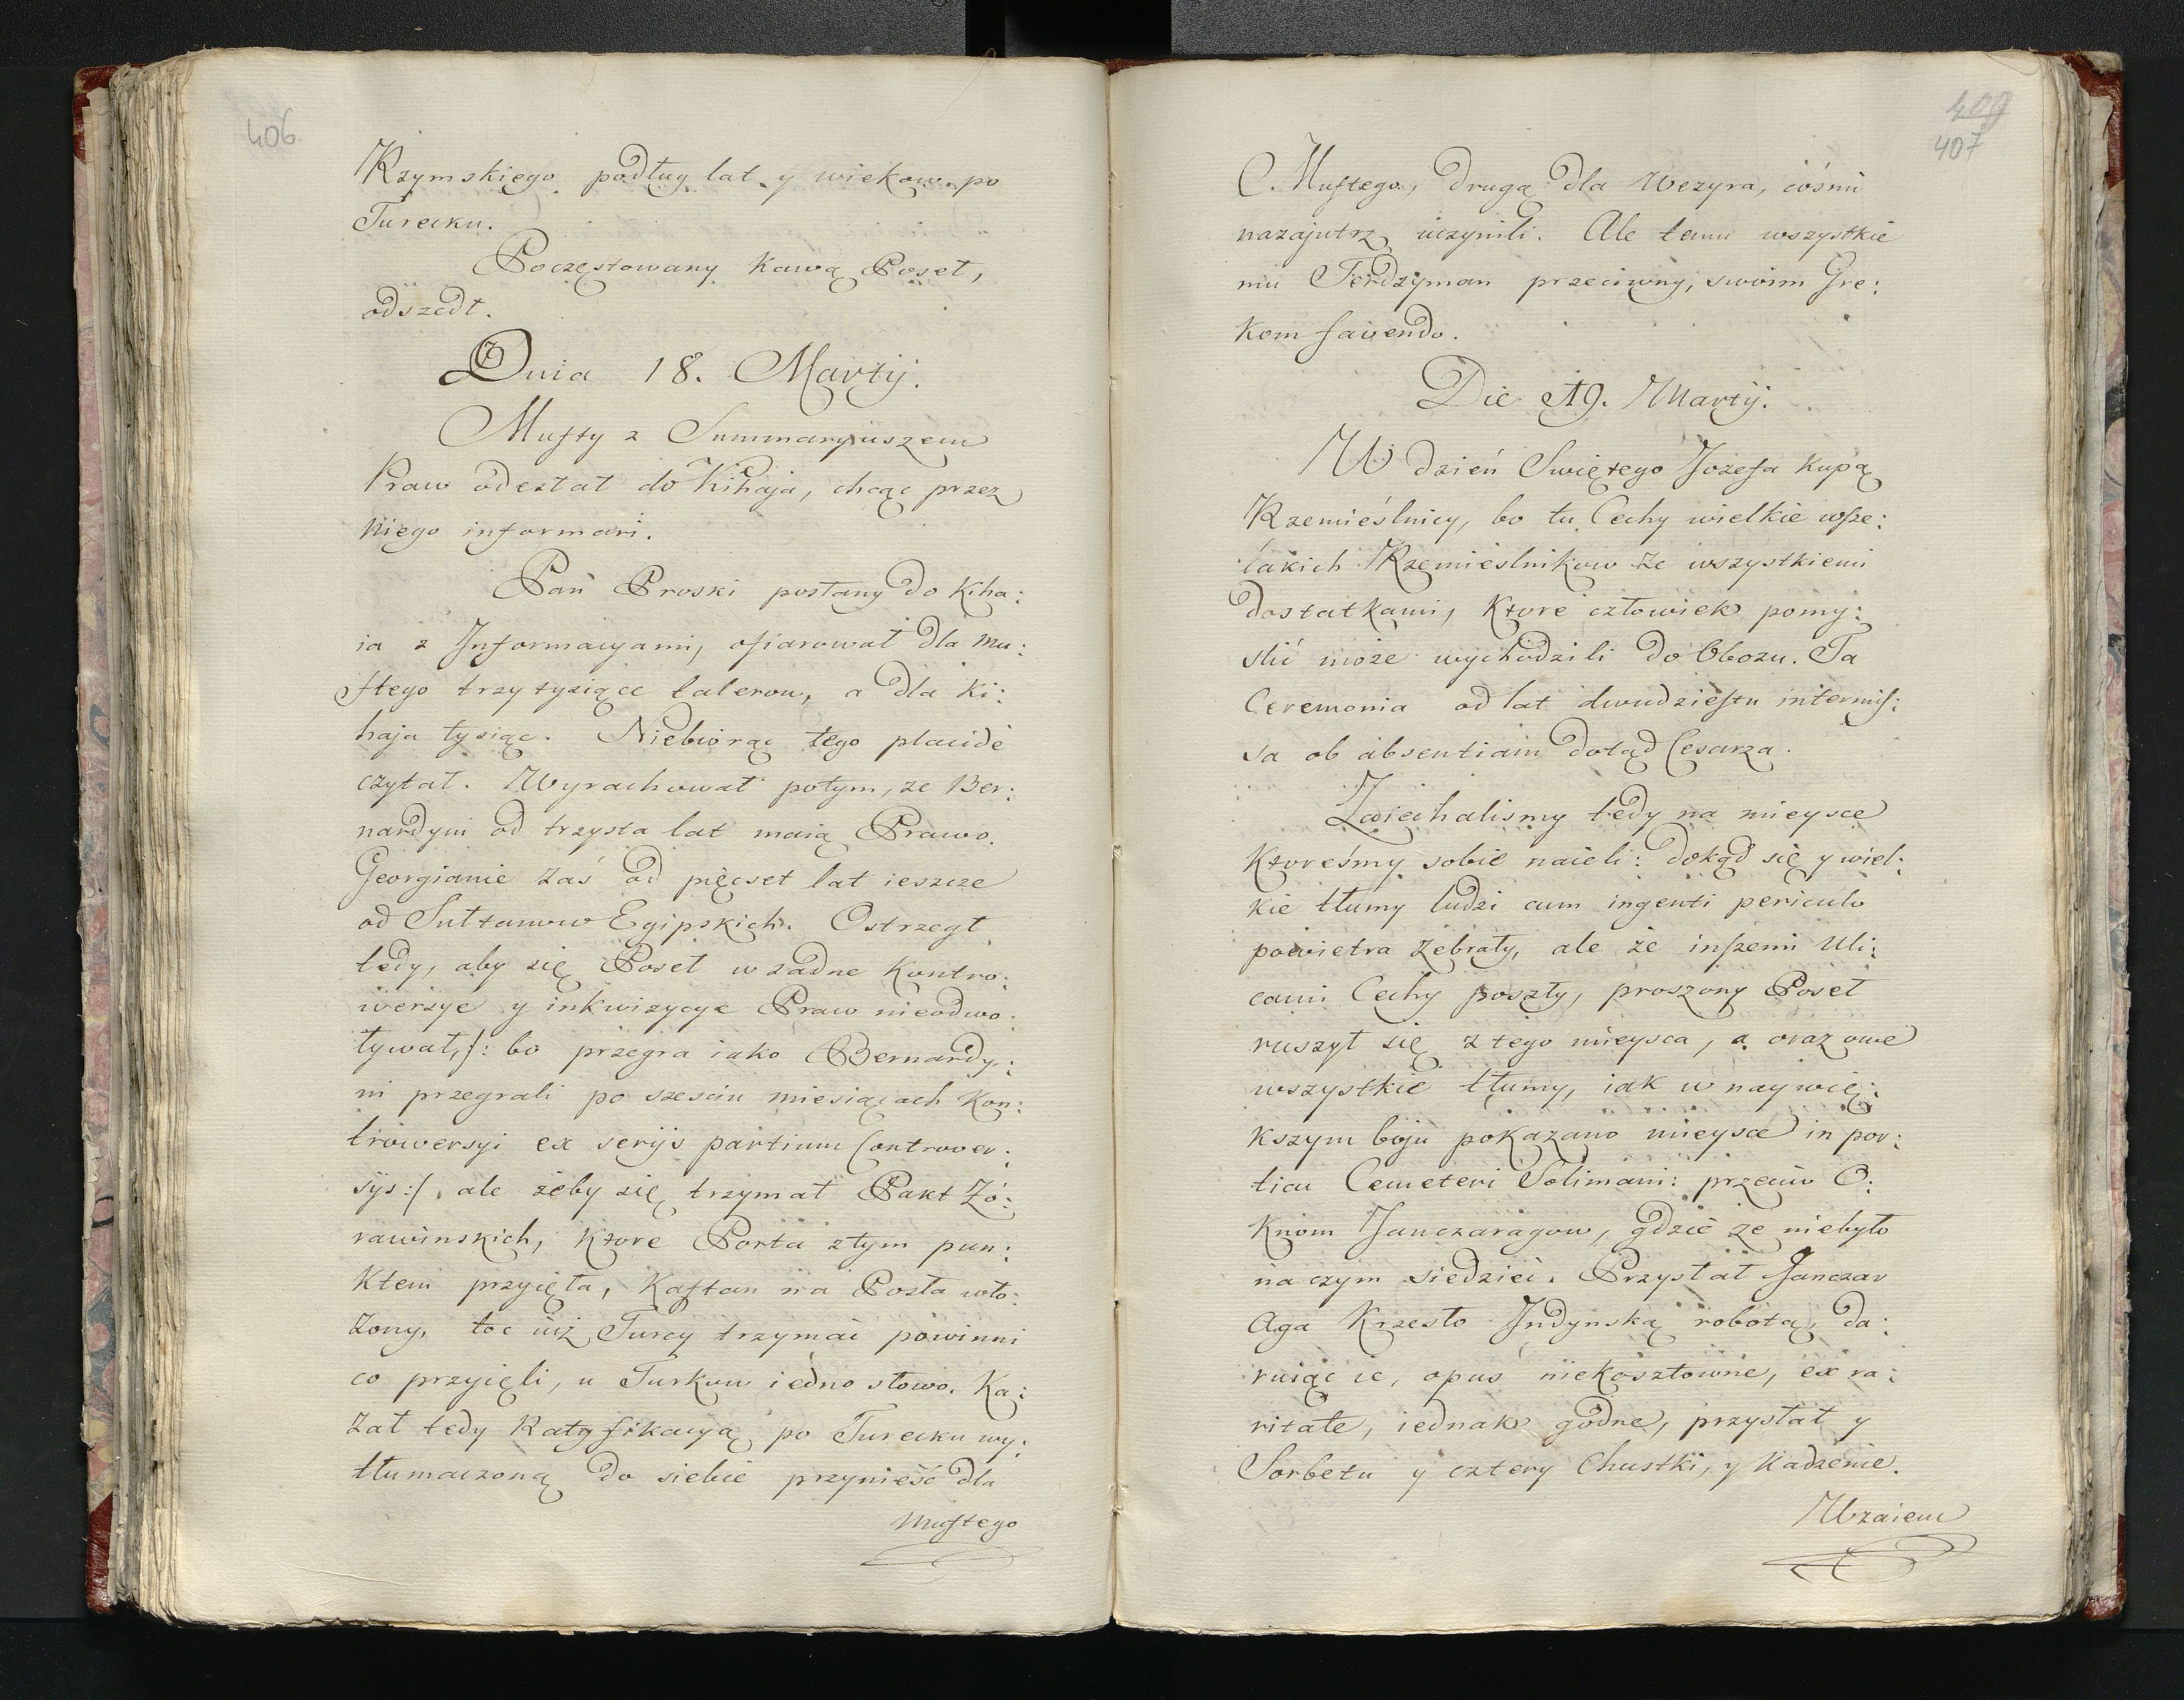 406
Rzymskiego podług lat y wiekow po
Turecku.
Poczęstowany kawą Poseł,
odszedł.
Dnia 18. Martij.
Mufty z Summaryuszem
Praw odesłał do Kihaja, chcąc przez
niego informari.
Pan Proski posłany do Kiha:
ia z Informacyami, ofiarował dla Mu:
ftego trzy tysiące talerow, a dla Ki:
haja tysiąc. Niebiorąc tego placide
czytał. Wyrachował potym, że Ber:
nardyni od trzysta lat maią Prawo.
Georgianie zaś od pięcset lat ieszcze
od Sułtanow Egipskich. Ostrzegł
tedy, aby się Poseł w żadne kontro:
wersye y inkwizycye Praw nieodwo:
ływał, /: bo przegra iako Bernardy:
ni przegrali po sześciu miesiącach Kon:
trowersyi ex serijs partium Controver:
sijs :/ ale żeby się trzymał Pakt Żó:
rawinskich, ktore Porta z tym pun:
ktem przyięła, Kaftan na Posła wło:
żony, toć iuż Turcy trzymać powinni
co przyięli, u Turkow iedno słowo. Ka:
zał tedy Ratyfikacyą po Turecku wy:
tłumaczoną do siebie przynieść dla
Muftego
409
407
Muftego, drugą dla Wezyra, cośmi
nazajutrz uczynili. Ale temu wszystkie
mu Terdzyman przeciwny, swoim Gre:
kom favendo.
Die 19. Martij.
W dzień Swiętego Jozefa kupą
Rzemieślnicy, bo tu Cechy wielkie wsze:
lakich Rzemieslnikow ze wszystkiemi
dostatkami, ktore człowiek pomy:
slić może wychodzili do Obozu. Ta
Ceremonia od lat dwudziestu intermis:
sa ob absentiam dotąd Cesarza.
Zaiechalismy tedy na mieysce
ktoreśmy sobie naieli: dokąd się y wiel:
kie tłumy ludzi cum ingenti periculo
powietra zebrały, ale że inszemi Uli:
cami Cechy poszły, proszony Poseł
ruszył się z tego mieysca, a oraz owe
wszystkie tłumy, iak w naywię:
kszym boju pokazano mieysce in por:
ticu Cemeteri Solimani: przeciw O:
knom Janczaragow, gdzie że niebyło
na czym siedzieć. Przysłał Janczar
Aga Krzesło Indynską robotą, da:
ruiąc ie, opus niekosztowne, ex ra:
ritate, iednak godne, przysłał y
Sorbetu y cztery Chustki, y Kadzenie.
Wzaiem